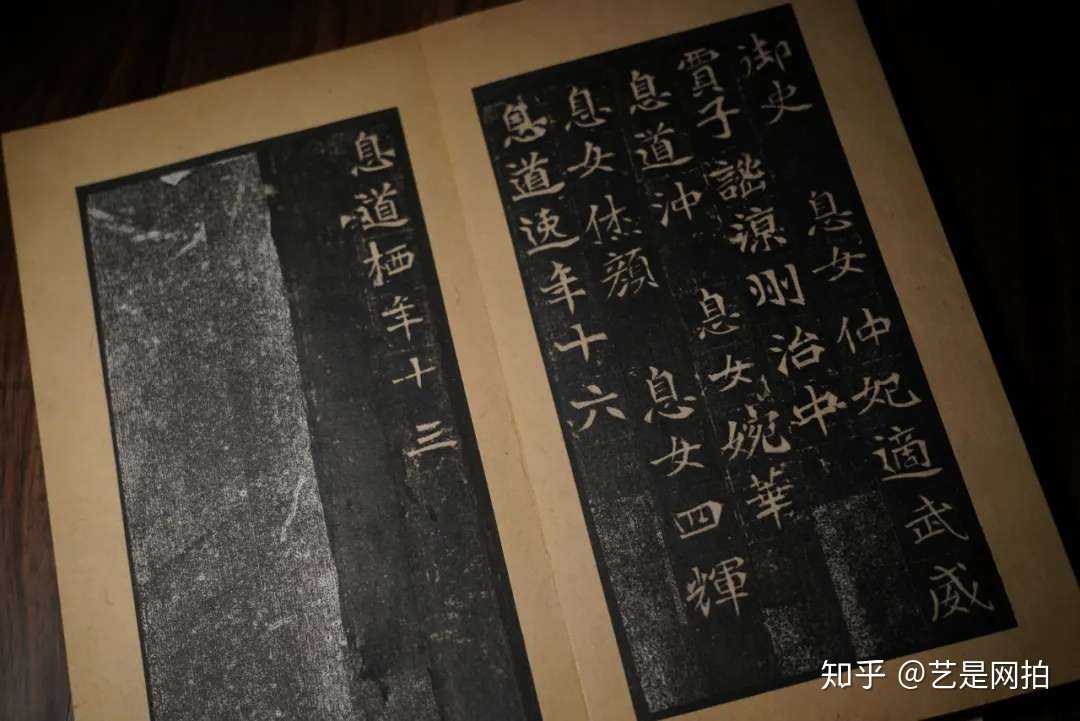 御史 息女仲妃適武威
賈子謐涼州治中
息道沖 息女婉華
息女休顏 息女四輝
息道速年十六
息道栖年十三
知乎 @艺是网拍